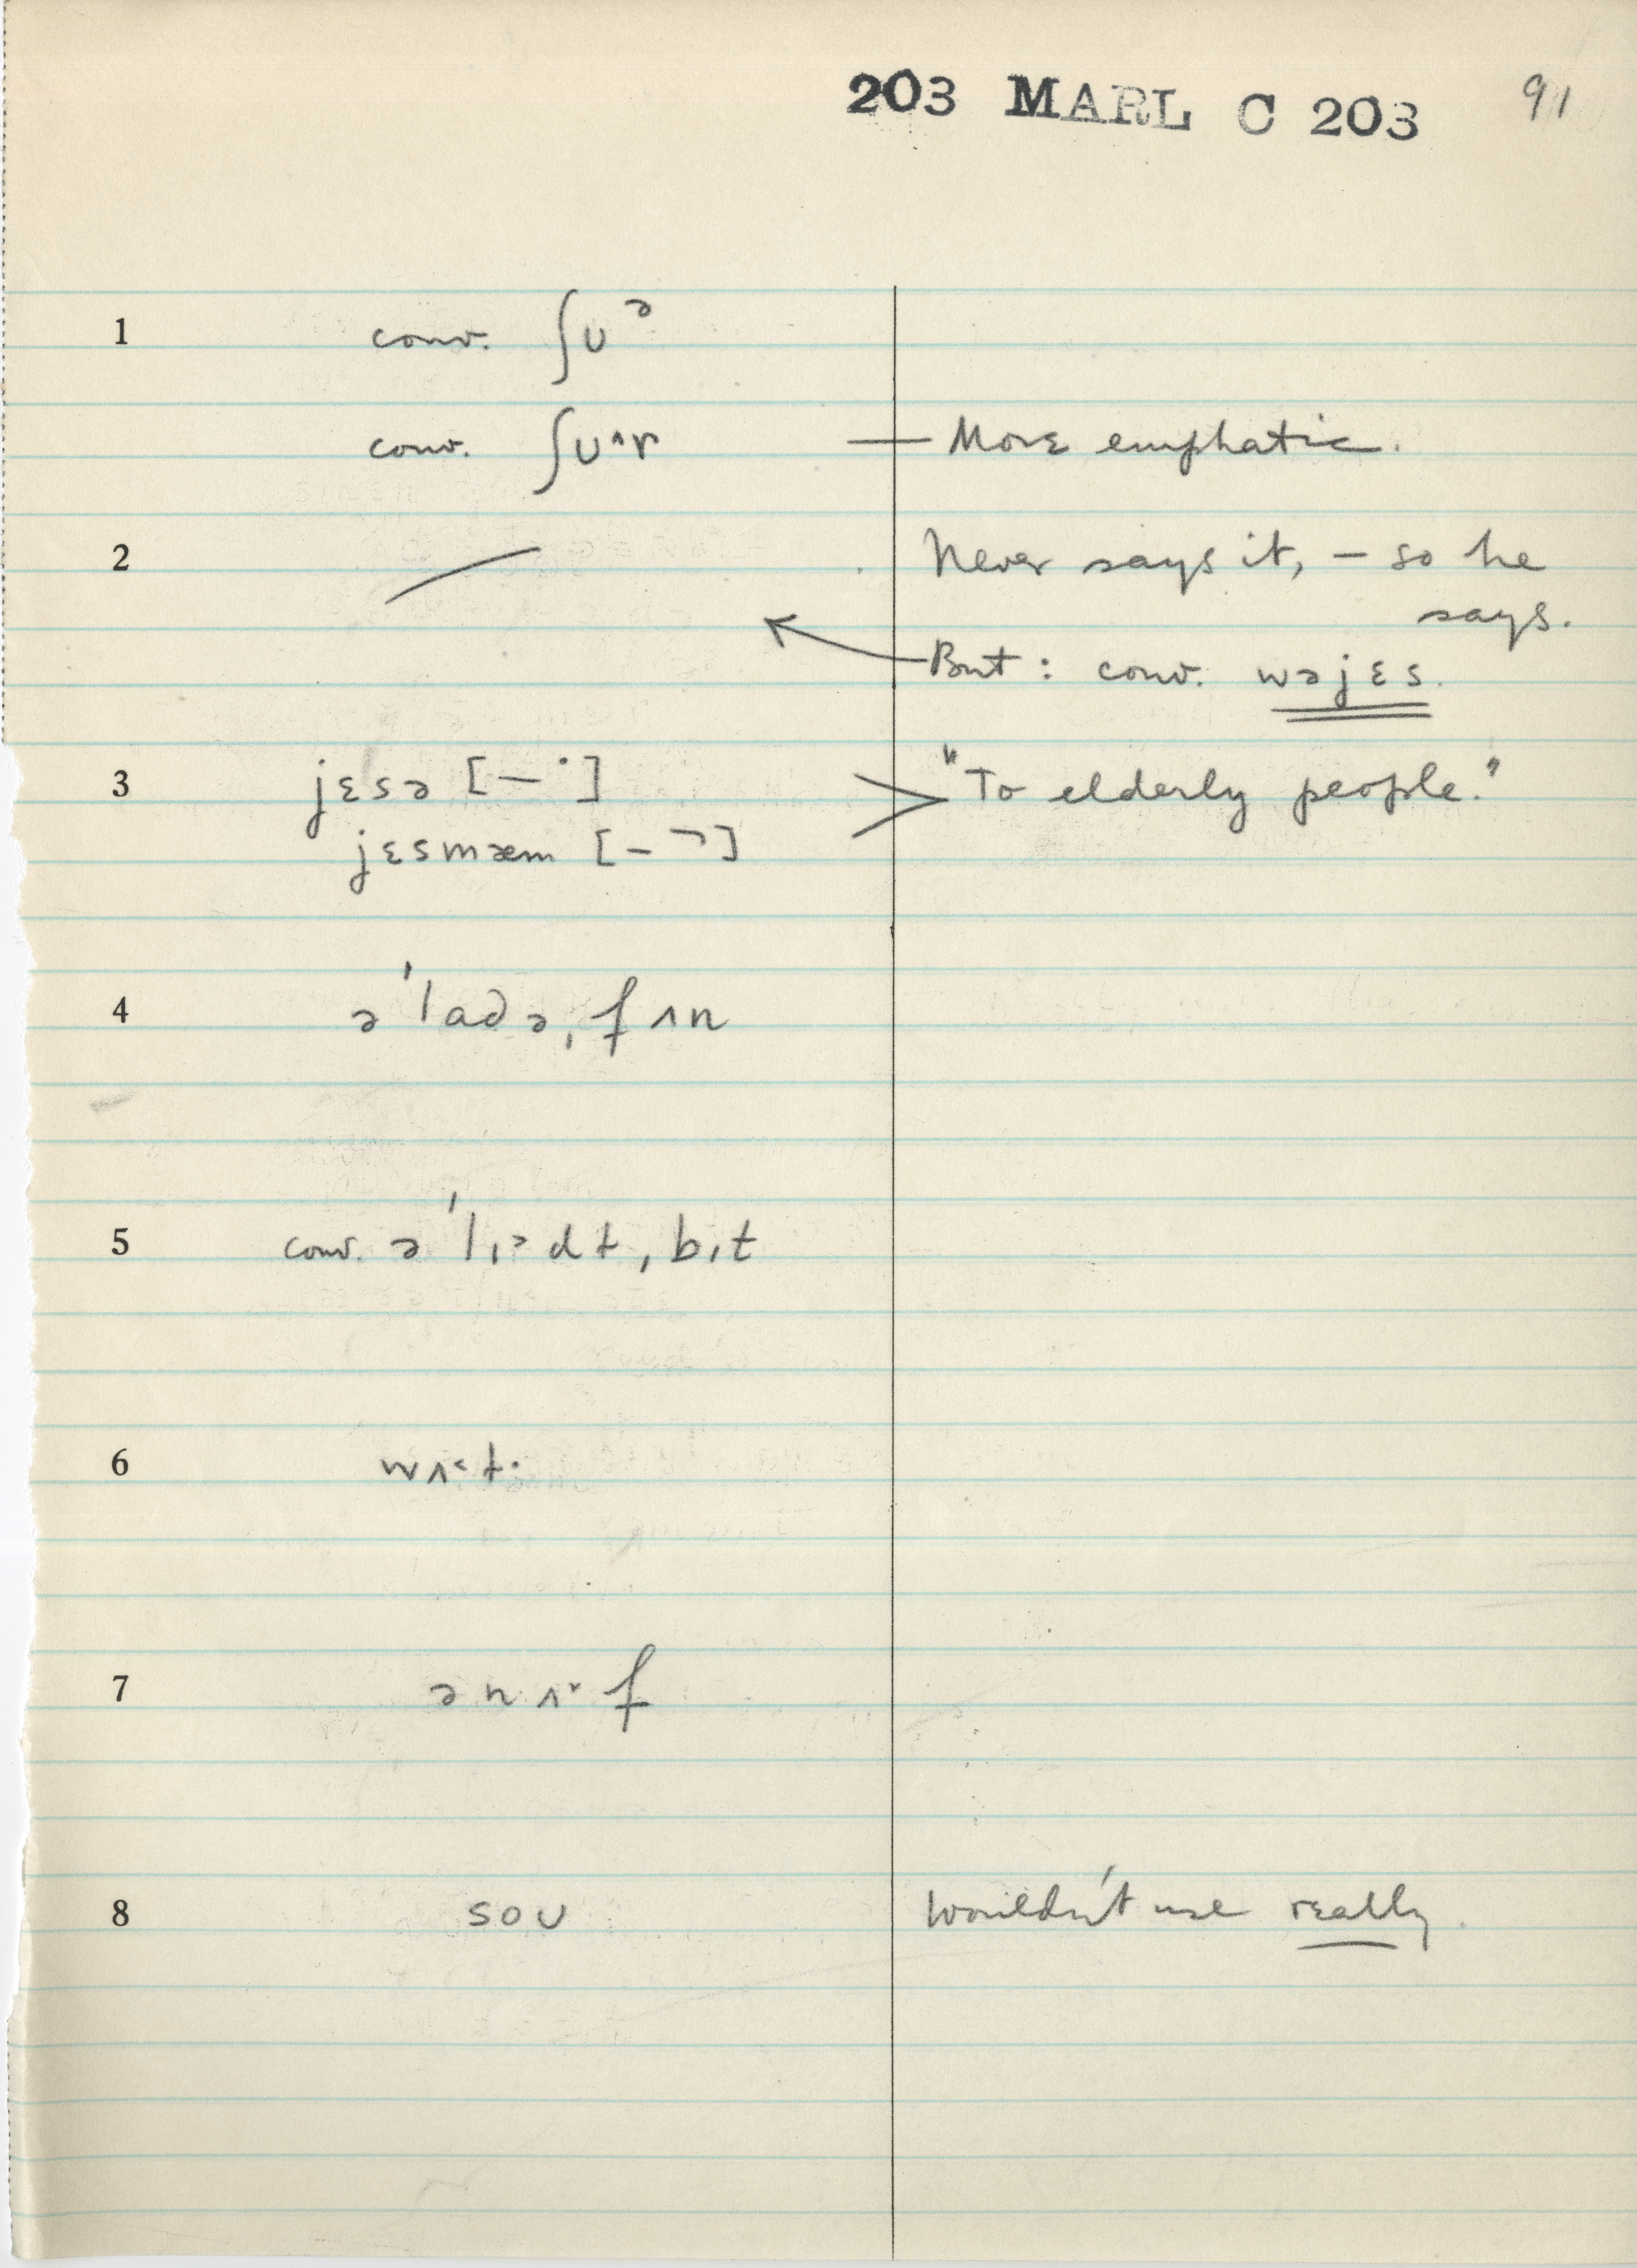 203 MARL C 203 91
1 conv. ʃʊᵊ
conv. ʃʊ˄r — More emphatic.
2 Never says it, — so he
says.
But: conv. wəjɛs.
3 jɛsə [—˙] "To elderly people."
jɛsmæm [–¬]
4 ə'ladə,fʌn
5 conv. ə'lɪ˃dt,bɪt
6 wʌ˂t·
7 ənʌ˅f
8 soʊ Wouldn't use really.